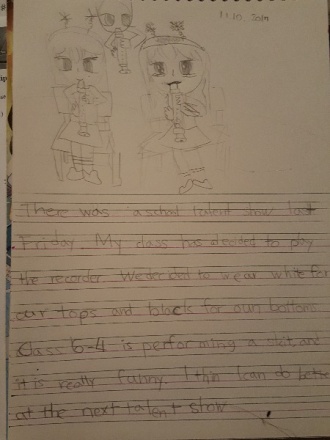 11.10 2019
There was a school talent show last
Friday. My class has decided to play
the recorder. We decided to wear white for
our tops and black for oun bottoms
Class 6-4 is performing a skit, and
it is really funny. I thin I can do better
at the next talent show